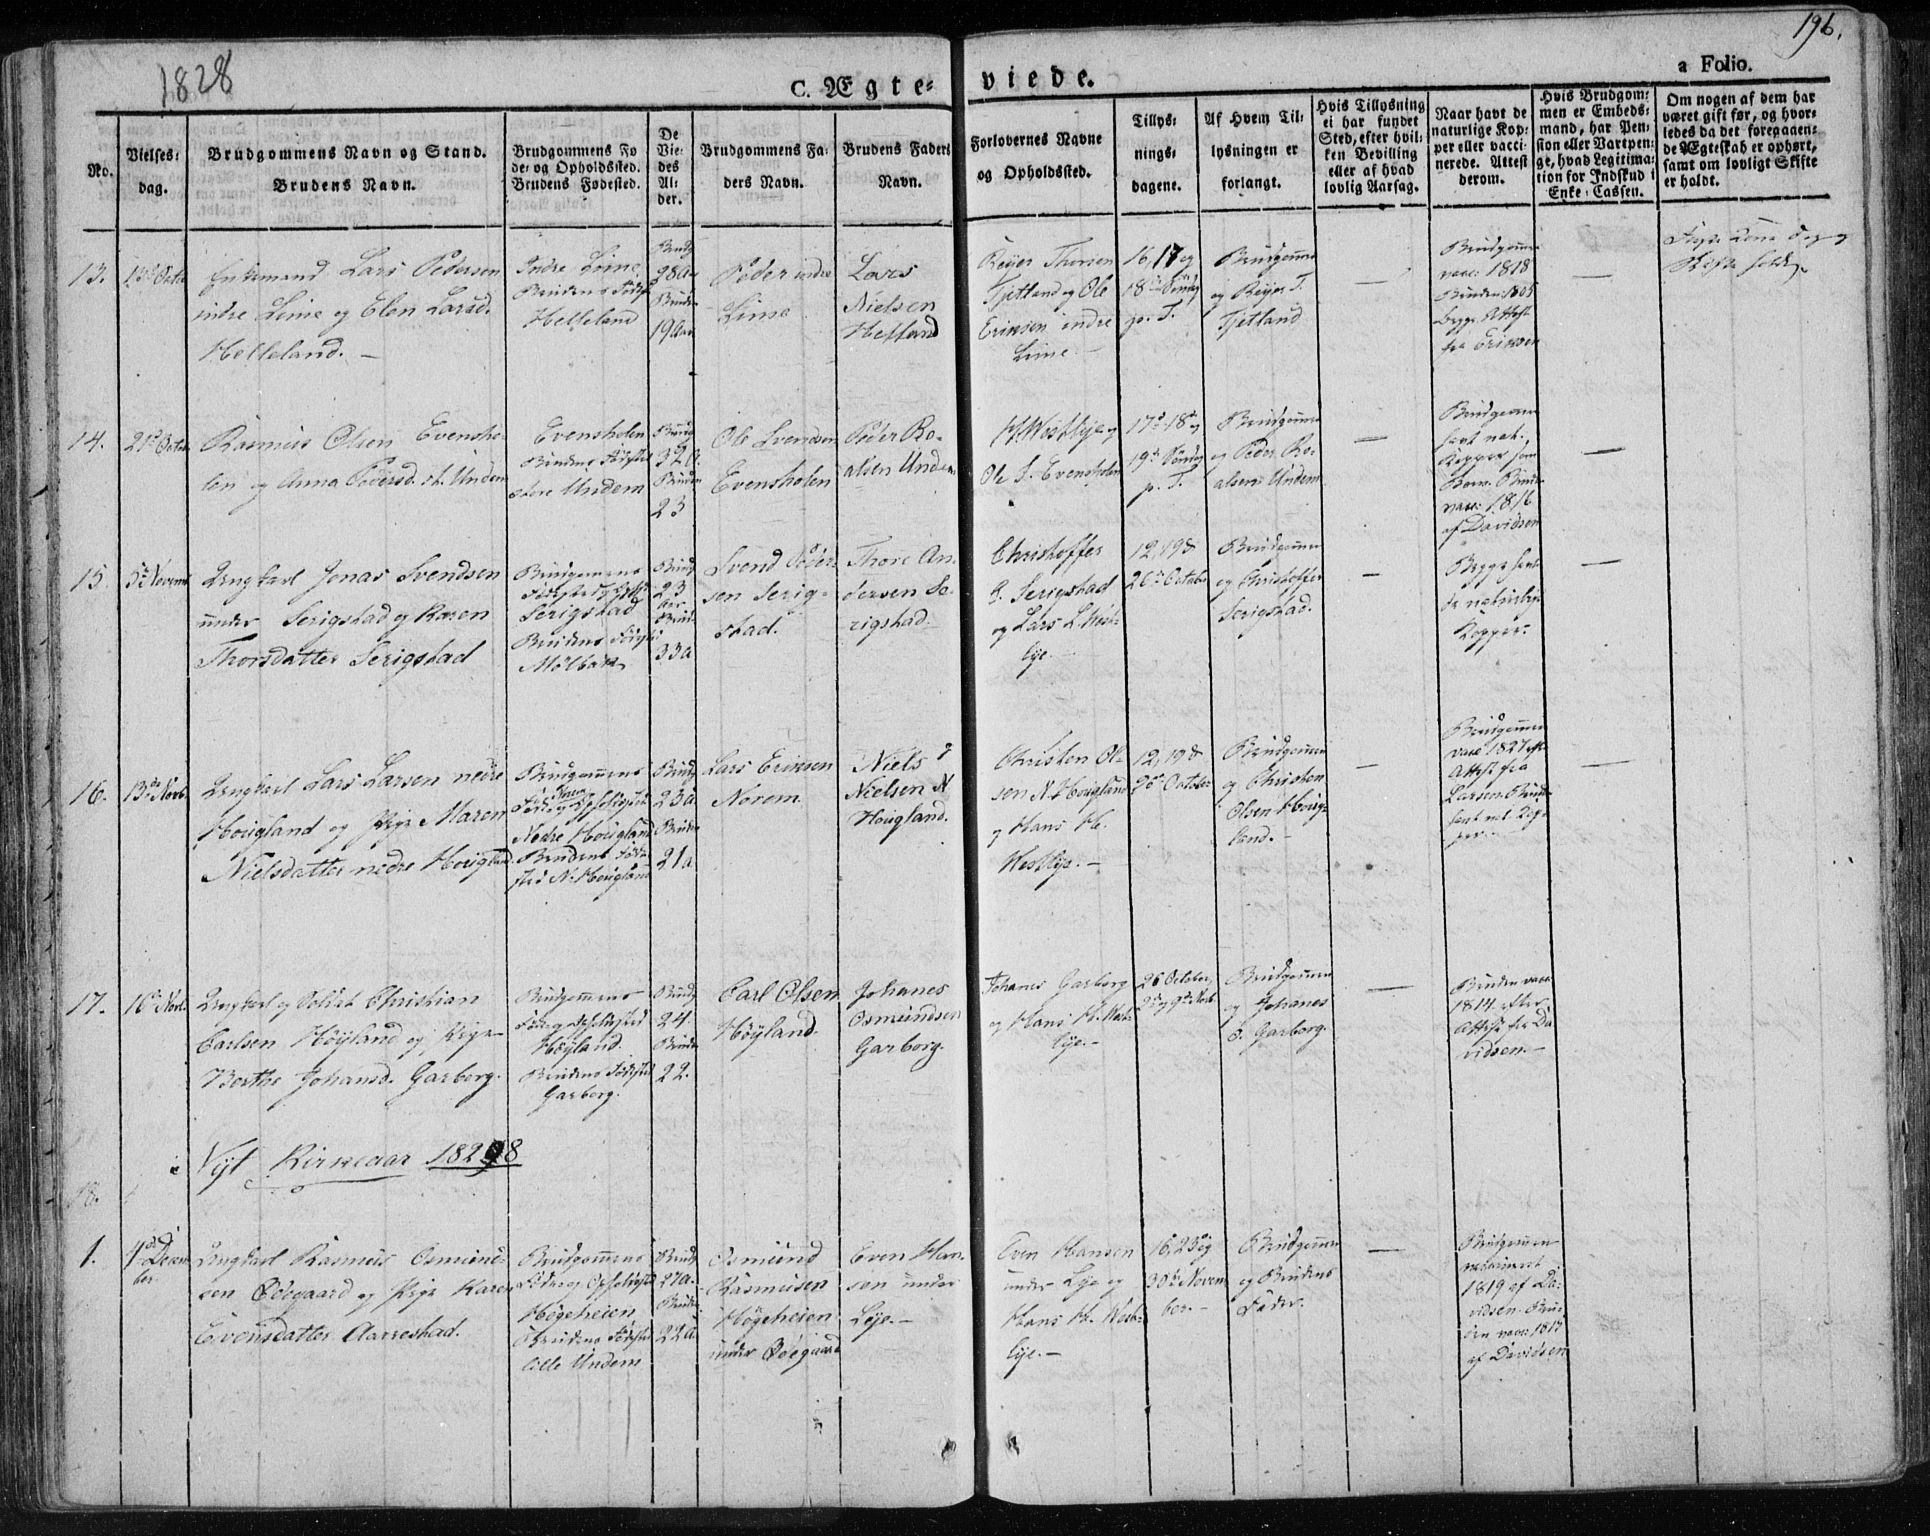 1828
196.
C. Ægte-
viede.
a Folio.
No.
Vielses-
dag.
Brudgommens Navn og Stand.
Brudens Navn.
Brudgommens Fø
de- og Opholdssted.
Brudens Fødested.
De
Vie-
des
Al-
der.
Brudgommens Fa-
ders Navn.
Brudens Faders
Navn.
Forlovernes Navne
og Opholdssted.
Tillys-
nings-
dagene.
Af Hvem Til-
lysningen er
forlangt.
Hvis Tillysning
ei har fundet
Sted, efter hvil-
ken Bevilling
eller af hvad
lovlig Aarsag.
Naar havt de
naturlige Kop-
per eller vacci-
nerede. Attest
derom.
Hvis Brudgom-
men er Embeds-
mand, har Pen-
sion eller Vartpen-
ge, hvad Legitima-
tion for Indskud i
Enke-Cassen.
Om nogen af dem har
været gift før, og hvor-
ledes da det foregaaen-
de Ægteskab er ophørt,
samt om lovligt Skifte
er holdt.
13.
Enkemand Lars Pedersen
indre Lime og Elen Larsd.
Helleland. —
Indre Lime,
Brudens Fødested
Helleland
Brudg
28 Aar
Bruden
19 Aar
Peder indre
Lime
Lars
Nielsen
Helland
Reijer Thorsen
Tjetland og Ole
Eriksen indre
Lime. —
16, 17 og
18de Søndag
p. T.
Brudgommen
og Reijer T.
Tjetland
—
Brudgommen
vacc: 1818
Bruden 1809
begge Attest
fra Eriksen
—
14.
21de Octob.
Rasmus Olsen Evensho-
len og Anna Pedersd. st. Undem
Evensholen
Brudens Fødested
store Undem
Brudg
32 A.
Bruden
23
Ole Svendsen
Evensholen
Peder Ro-
alsen Undem
H. Westlye og
Ole S. Evensholen
17de 18de og
19de Søndag
p. T.
Brudgommen
og Peder Ro-
alsen Undem
—
Brudgommen
havt nat.
Kopper som
Barn. Brud
vacc: 1816
af Davidsen
—
15.
5te Novemb
Ungkarl Jonas Svendsen
under Serigstad og Karen
Thorsdatter Serigstad
Brudgommens
Serigstad
Brudens Fødested
Mølbak
Brudg
23
Brud
33 a
Svend Peder-
sen Serig-
stad.
Thore An-
dersen Se-
rigstad.
Christoffer
P. Serigstad
og Lars L. West-
lye.
12, 19 &
26de October
Brudgommen
og Christoffer
Serigstad.
—
Begge havt
de naturlige
Kopper.
—
16.
13de Novb.
Ungkarl Lars Larsen nedre
Hougland og Pige Maren
Nielsdatter nedre Hougland
Brudgommens
Nedre Hougland
Brudens Føde-
sted N. Hougland
Brudg
23 a
Bruden
21 a
Lars Eriksen
Norem
Niels
Nielsen N
Hougland.
Christen Ol-
sen N. Hougland
og Hans H.
Westlye. —
12, 19 &
26de October
Brudgommen
og Christen
Olsen Houg-
land. —
—
Brudgommen
vacc 1827 efter
Attest fra
Larsen. Bruden
havt nat. Kop-
per. —
—
17.
Ungkarl og Soldat Christian
Carlsen Høyland og Pige
Berthe Johansd. Garborg.
Brudgommens
Føde og Opholdssted
Høyland.
Brudens Fødested
Garborg.
Brudg
24.
Bruden
22.
Carl Olsen
Høyland.
Johanes
Osmundsen
Garborg.
Johanes Garborg
og Hans H. West-
lye. —
26 October,
2den og 9de Novb.
Brudgommen
og Johanes
O. Garborg.
—
Bruden vacc.
1814 efter
Attest fra Da
vidsen. —
Nyt Kirkeaar 1828
18.
1.
4de Decem
ber
Ungkarl Rasmus Osmund-
sen Ødegaard og Pige Karen
Evensdatter Aarrestad.
Brudgommens
Føde og Opholdssted
Høgeheien
Brudens Fødested
lille Undem
Brudg
27 a.
Bruden
22 a
Osmund
Rasmusen
Høgeheien
under Ødegaard
Even Han-
sen under
Lye. —
Even Hansen
under Lye og
Hans H. West-
lye. —
16, 23 og
30de Novem
ber. —
Brudgommen
og Brudens
Fader.
—
Brudgommen
vaccineret
1819 af Da-
vidsen. Bru-
den vacc. 1817
af Davidsen